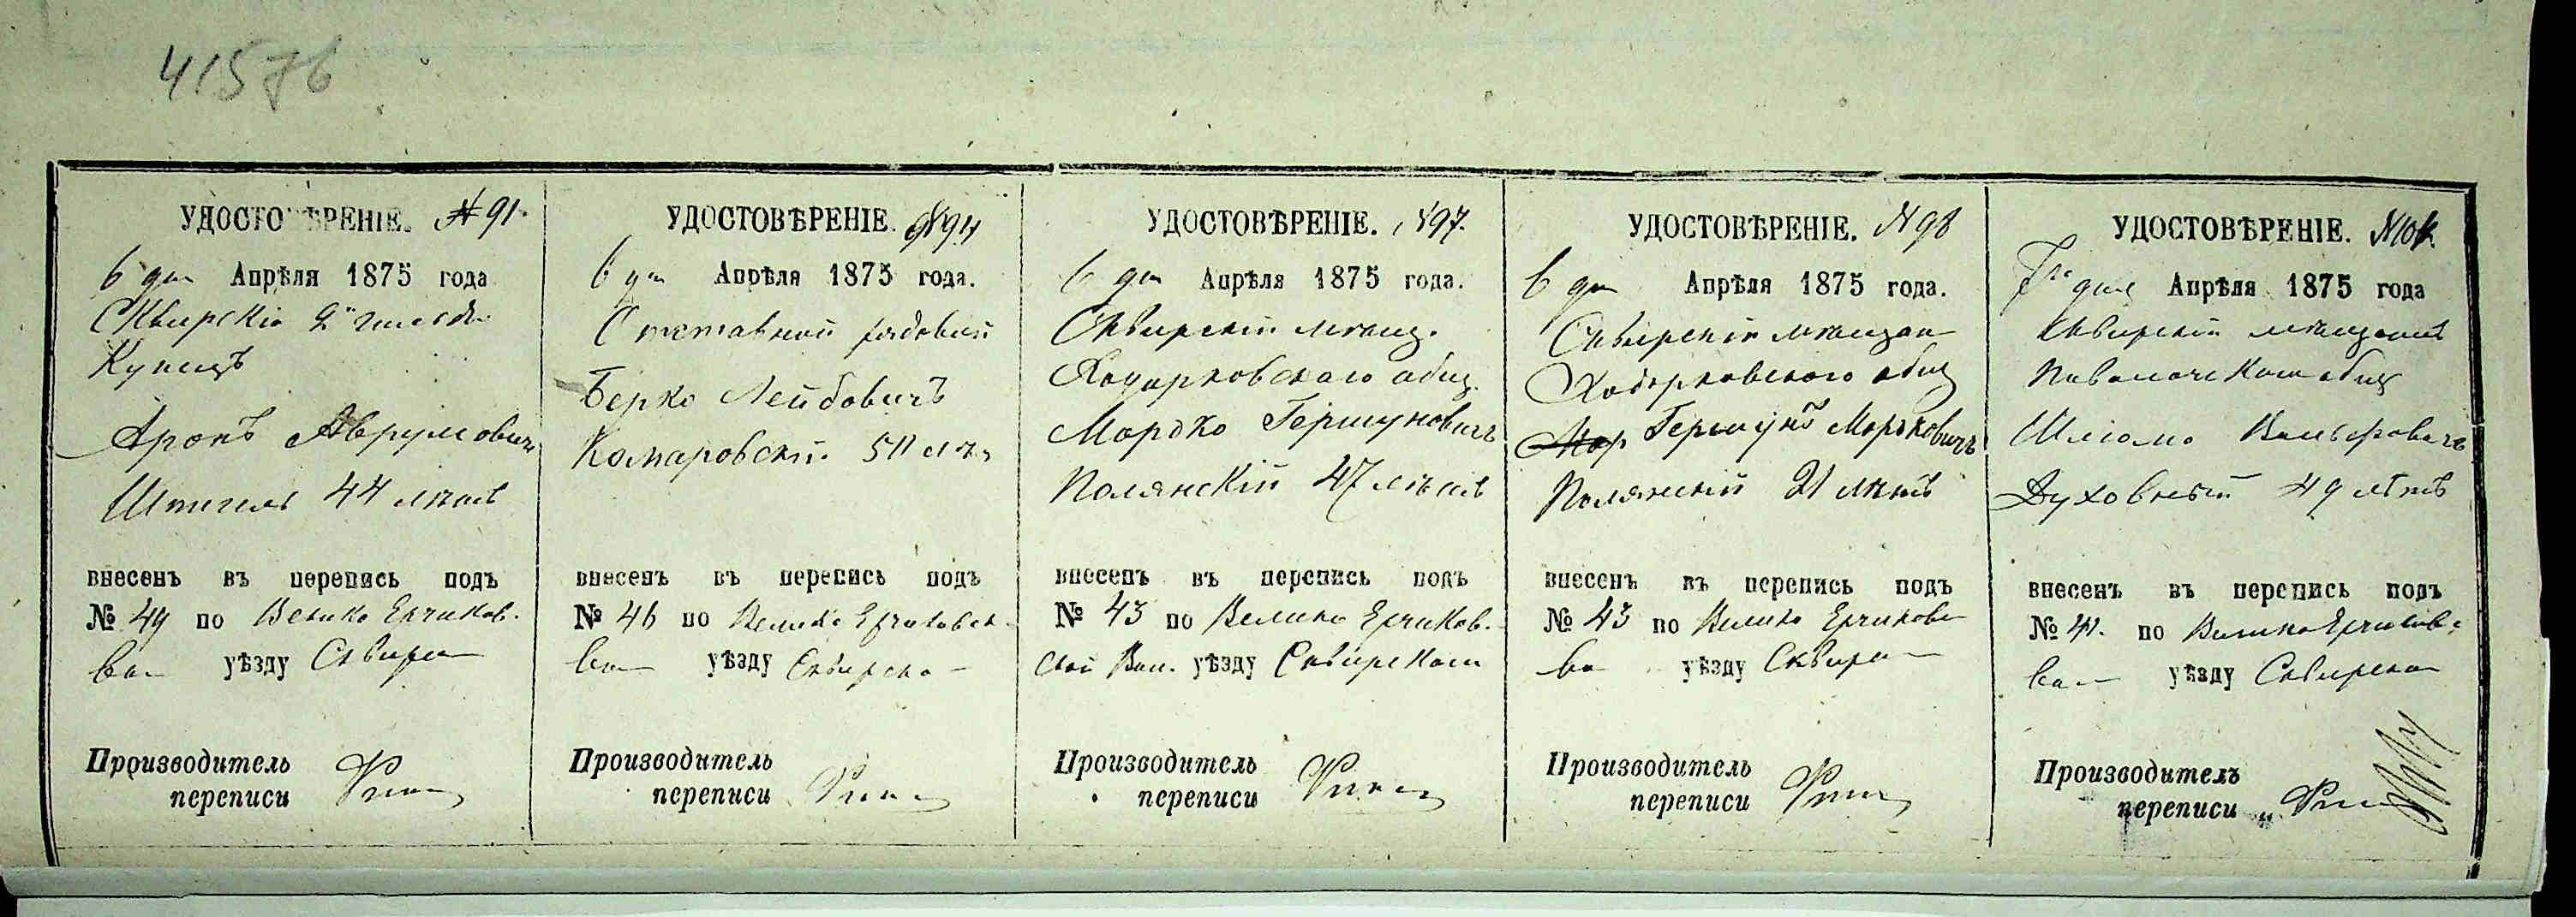 41576
УДОСТОВѢРЕНІЕ. № 91.
6 дня Апрѣля 1875 года
Сквирскій 2й гильдіи
Купецъ
Аронъ Аврумовичъ
Шпигель 44 лѣтъ
внесенъ въ перепись подъ
№ 49 по Велико Ерчиков.
уѣзду Сквирс
Производитель
переписи
УДОСТОВѢРЕНІЕ. № 94
6 дня Апрѣля 1875 года.
Отставной рядовой
Берко Лейбовичъ
Комаровскій
внесенъ въ перепись подъ
№ 46 по Велико Ерчиковск
уѣзду Сквирско
Производитель
переписи
УДОСТОВѢРЕНІЕ. № 97.
6 дня Апрѣля 1875 года.
Сквирскій мѣщ.
Ходорковскаго общ.
Мордко Гершуновичъ
Полянскій 47 лѣтъ
внесенъ въ перепись подъ
№ 43 по Велико Ерчиков.
ской Вол. уѣзду Сквирскому
Производитель
переписи
УДОСТОВѢРЕНІЕ. № 98
6 дня Апрѣля 1875 года.
Сквирскій мѣщан
Ходорковского общ
Мор Гершунъ Морьковичъ
Полянскій 21 лѣтъ
внесенъ въ перепись подъ
№ 43 по Велико Ерчиков
уѣзду Сквирс
Производитель
переписи
УДОСТОВѢРЕНІЕ.
дня Апрѣля 1875 года
Сквирскій мѣщанинъ
Паволочского общ
Шліомо Вольфовичъ
Духовный 49 лѣтъ
внесенъ въ перепись подъ
№ 41. по Велико Ерчиков
уѣзду Сквирско
Производитель
переписи